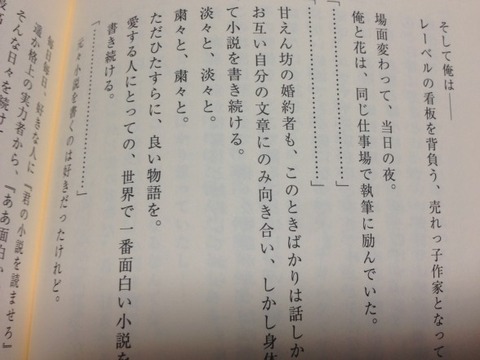 そして俺は――
レーベルの看板を背負う、売れっ子作家となって
場面変わって、当日の夜。
俺と花は、同じ仕事場で執筆に励んでいた。
「…………………………」
「…………………………」
甘えん坊の婚約者も、このときばかりは話しか
お互い自分の文章にのみ向き合い、しかし身体
て小説を書き続ける。
淡々と、淡々と。
粛々と、粛々と。
ただひたすらに、良い物語を。
愛する人にとっての、世界で一番面白い小説を
書き続ける。
「…………………………」
元々小説を書くのは好きだったけれど。
毎日毎日、好きな人に『君の小説を読ませろ』
遥か格上の実力者から、『ああ面白い
そんな日々を続け